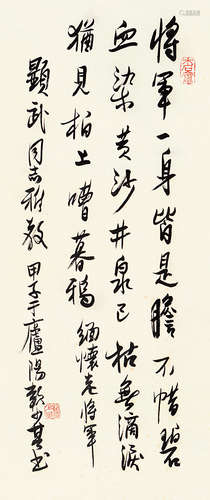 將軍一身皆是膽不惜碧
血染黃沙井泉已枯無滴淚
猶見柏上噪暮鴉緬懷老將軍
顯武同志雅教甲子于廬陽
書